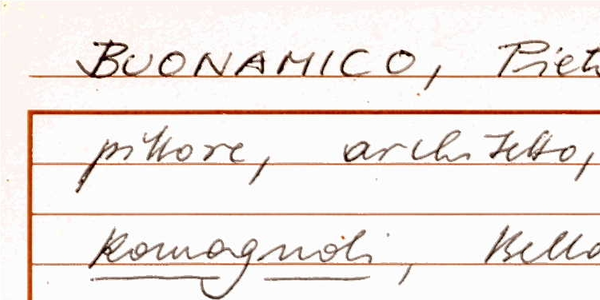 BUONAMICO, Piet
pittore, architetto,
Romagnoli, Bella